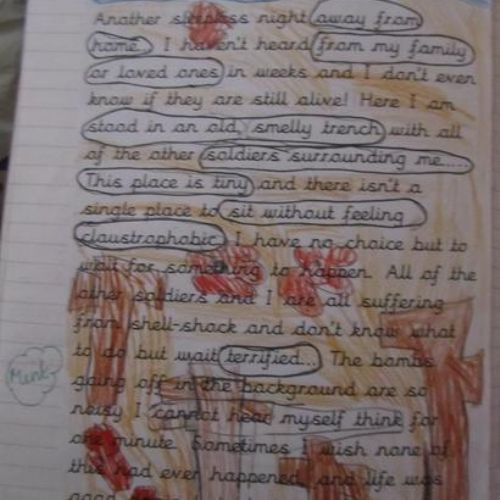 Another sleepless night away from
home. I haven't heard from my family
or loved ones in weeks and I don't even
know if they are still alive! Here I am
stood in an old, smelly trench with all
of the other soldiers surrounding me.....
This place is tiny and there isn't a
single place to sit without feeling
claustrophobic. I have no choice but to
wait for something to happen. All of the
other soldiers and I are all suffering
from shell-shock and don't know what
to do but wait terrified... The bombs
going off in the background are so
noisy I cannot hear myself think for
one minute. Sometimes I wish none of
this had ever happened and life was